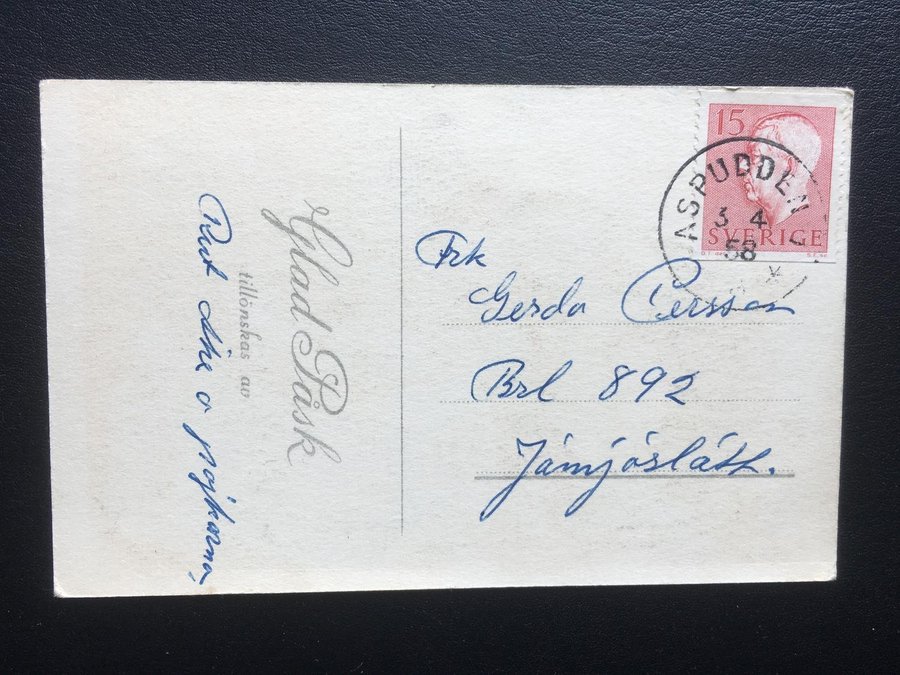 Glad Påsk
tillönskas av
Rut Åke o pojkarna
15
SVERIGE
ASPUDDEN
3 4
58
Frk
Gerda Persson
Brl 892
Jämjöslätt.